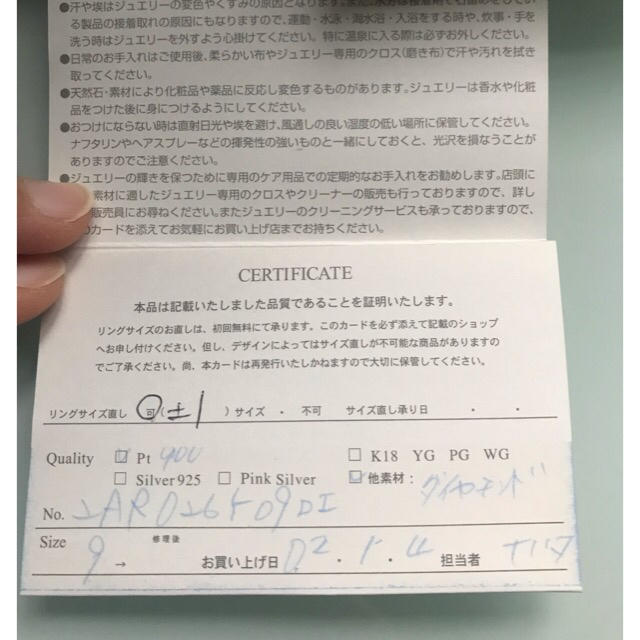 ●汗や埃はジュエリーの変色やくすみの原因となります。また、水分は接着剤で石留めをしてい
る製品の接着取れの原因にもなりますので、運動・水泳・海水浴・入浴をする時や、炊事・手を
洗う時はジュエリーを外すよう心掛けてください。特に温泉に入る際は必ずお外しください。
●日常のお手入れはご使用後、柔らかい布やジュエリー専用のクロス(磨き布)で汗や汚れを拭き
取ってください。
●天然石・素材により化粧品や薬品に反応し変色するものがあります。ジュエリーは香水や化粧
品をつけた後に身につけるようにしてください。
●おつけにならない時は直射日光や埃を避け、風通しの良い湿度の低い場所に保管してください。
ナフタリンやヘアスプレーなどの揮発性の強いものと一緒にしておくと、光沢を損なうことが
ありますのでご注意ください。
●ジュエリーの輝きを保つために専用のケア用品での定期的なお手入れをお勧めします。店頭に
素材に適したジュエリー専用のクロスやクリーナーの販売も行っておりますので、詳し
販売員にお尋ねください。またジュエリーのクリーニングサービスも承っておりますので、
のカードを添えてお気軽にお買い上げ店までお持ちください。
CERTIFICATE
本品は記載いたしました品質であることを証明いたします。
リングサイズのお直しは、初回無料にて承ります。このカードを必ず添えて記載のショップ
へお申し付けください。但し、デザインによってはサイズ直しが不可能な商品がありますの
でご了承ください。尚、本カードは再発行いたしかねますので大切に保管してください。
リングサイズ直し 可(±1 )サイズ ・ 不可 サイズ直し承り日 ・ ・
Quality Pt 900 K18 YG PG WG
Silver925 Pink Silver 他素材: ダイヤモンド
No.
Size 9 → 修理後 お買い上げ日 02・1・4 担当者